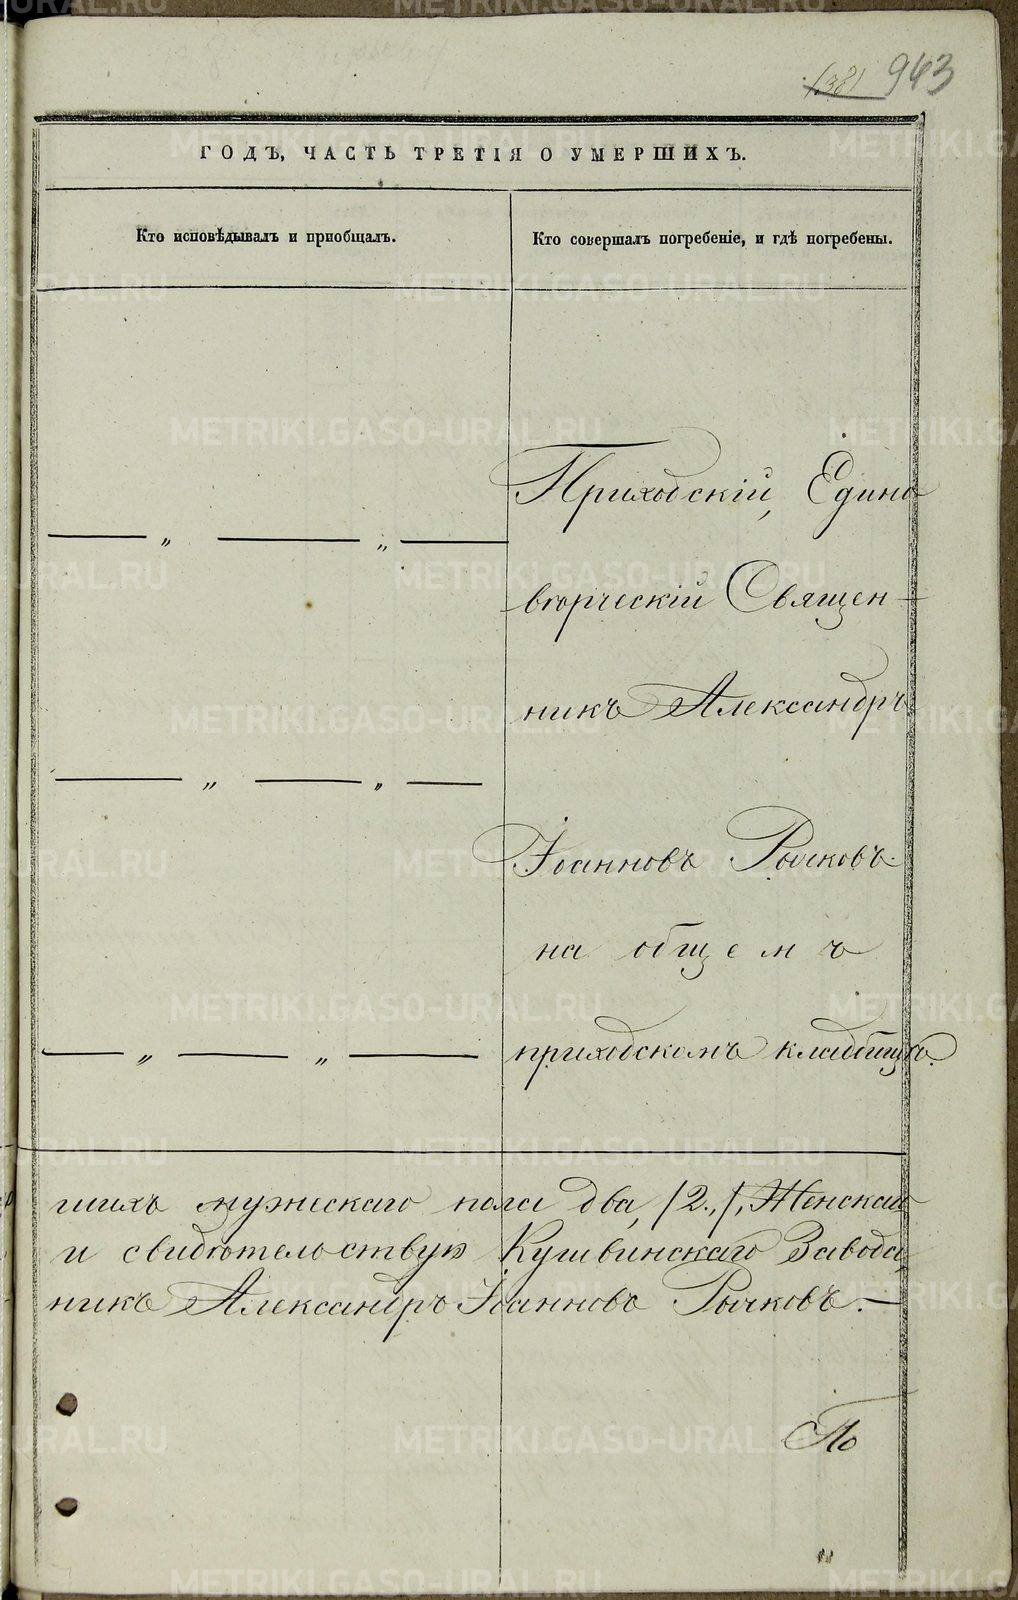 943
ГОДЪ, ЧАСТЬ ТРЕТІЯ О УМЕРШИХЪ.
Кто исповѣдывалъ и пріобщалъ.
Кто совершалъ погребеніе, и гдѣ погребены.
Приходскій, Едино
вѣрческій Священ-
никъ Александръ
Іоанновъ Рычковъ
на общемъ
приходскомъ кладбищѣ.
шихъ мужескаго пола два, /2./, Женскаго
и свидѣтельствую Кушвинскаго Завода,
никъ Александръ Іоанновъ Рычковъ.—
По
METRIKI.GASO-URAL.RU